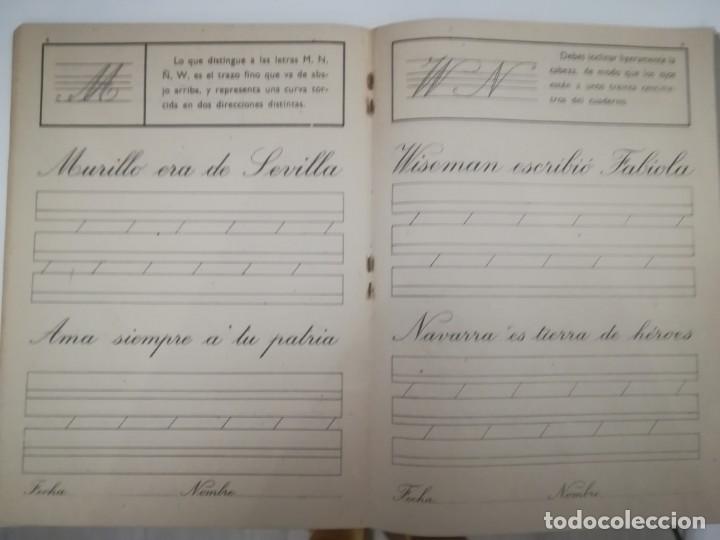 4
M
Lo que distingue a las letras M, N,
Ñ, W, es el trazo fino que va de aba-
jo arriba, y representa una curva tor-
cida en dos direcciones distintas.
Murillo era de Sevilla
Ama siempre a tu patria
Fecha Nombre
W N
Debes inclinar ligeramente la
cabeza, de modo que los ojos
estén a unos treinta centíme-
tros del cuaderno.
Wiseman escribió Fabiola
Navarra es tierra de héroes
Fecha Nombre
todocoleccion
todocoleccion.net